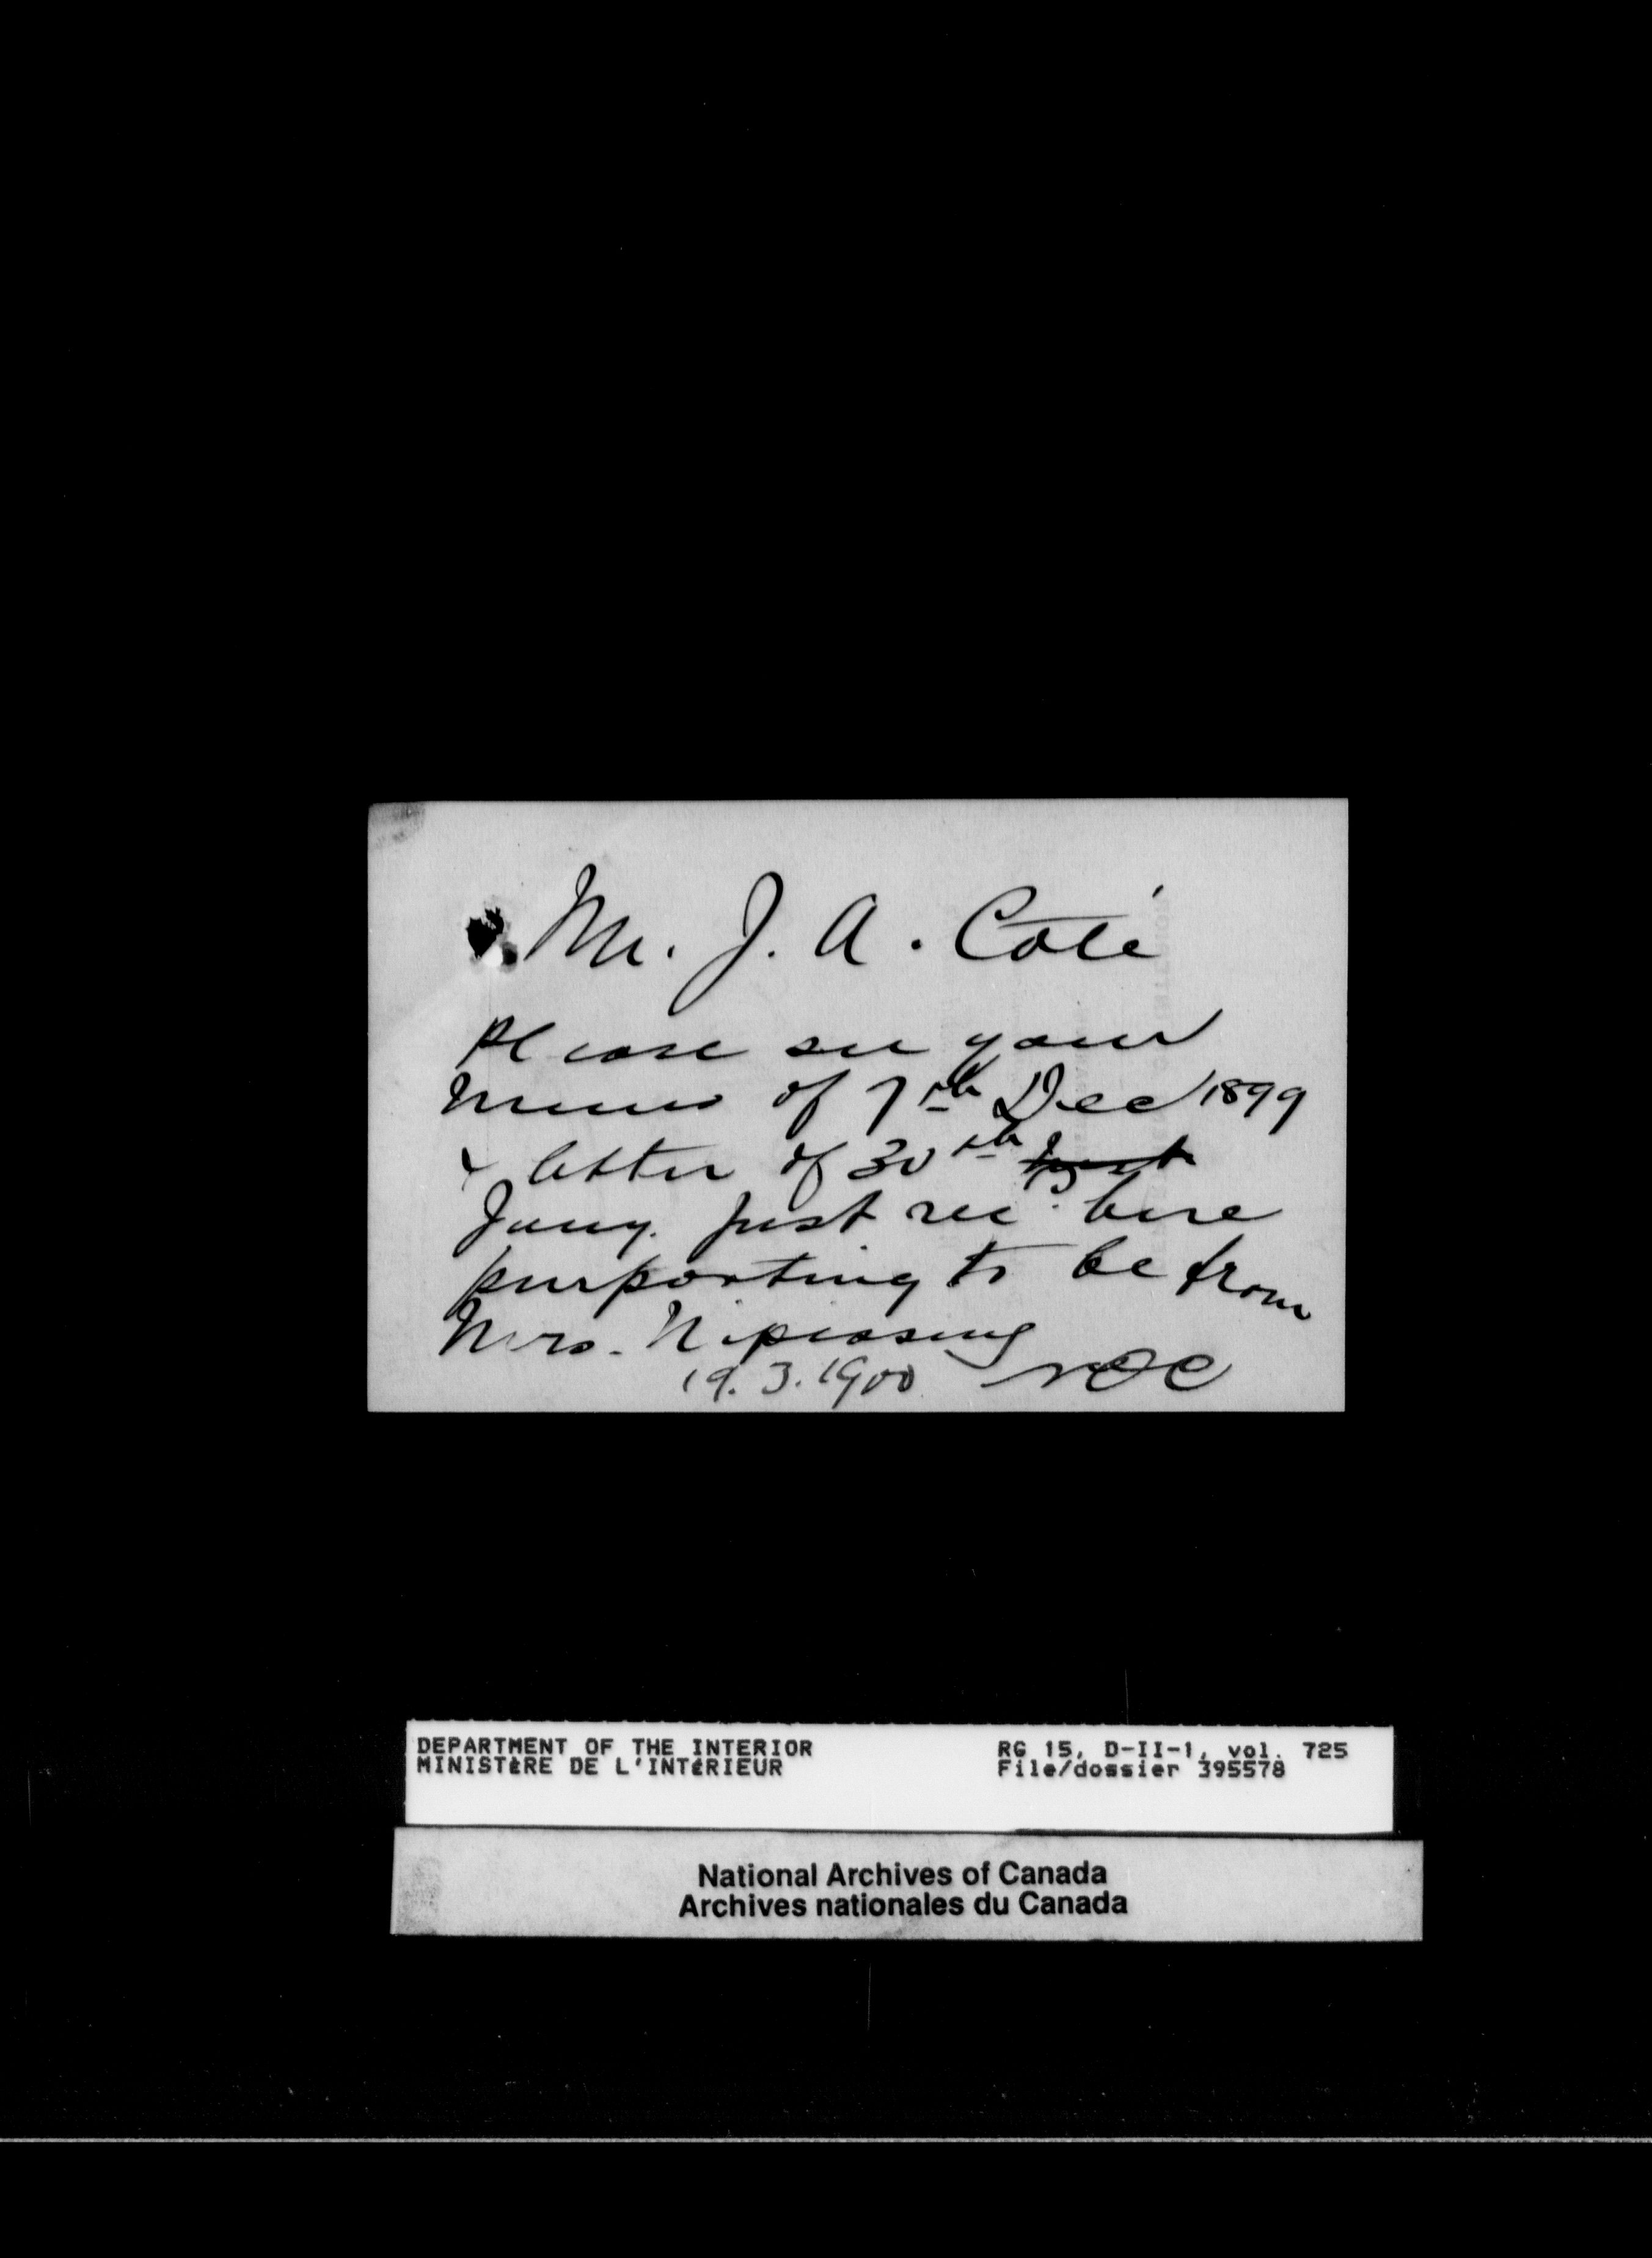 Mr. J. A. Coté
Please see your
memo of 7th Dec 1899
& letter of 30th
Jany. just rec'd here
purporting to be from
Mrs. Nipissing
19.3.1900
DEPARTMENT OF THE INTERIOR
MINISTÈRE DE L'INTÉRIEUR
RG 15, D-II-1, vol. 725
File/dossier 395578
National Archives of Canada
Archives nationales du Canada